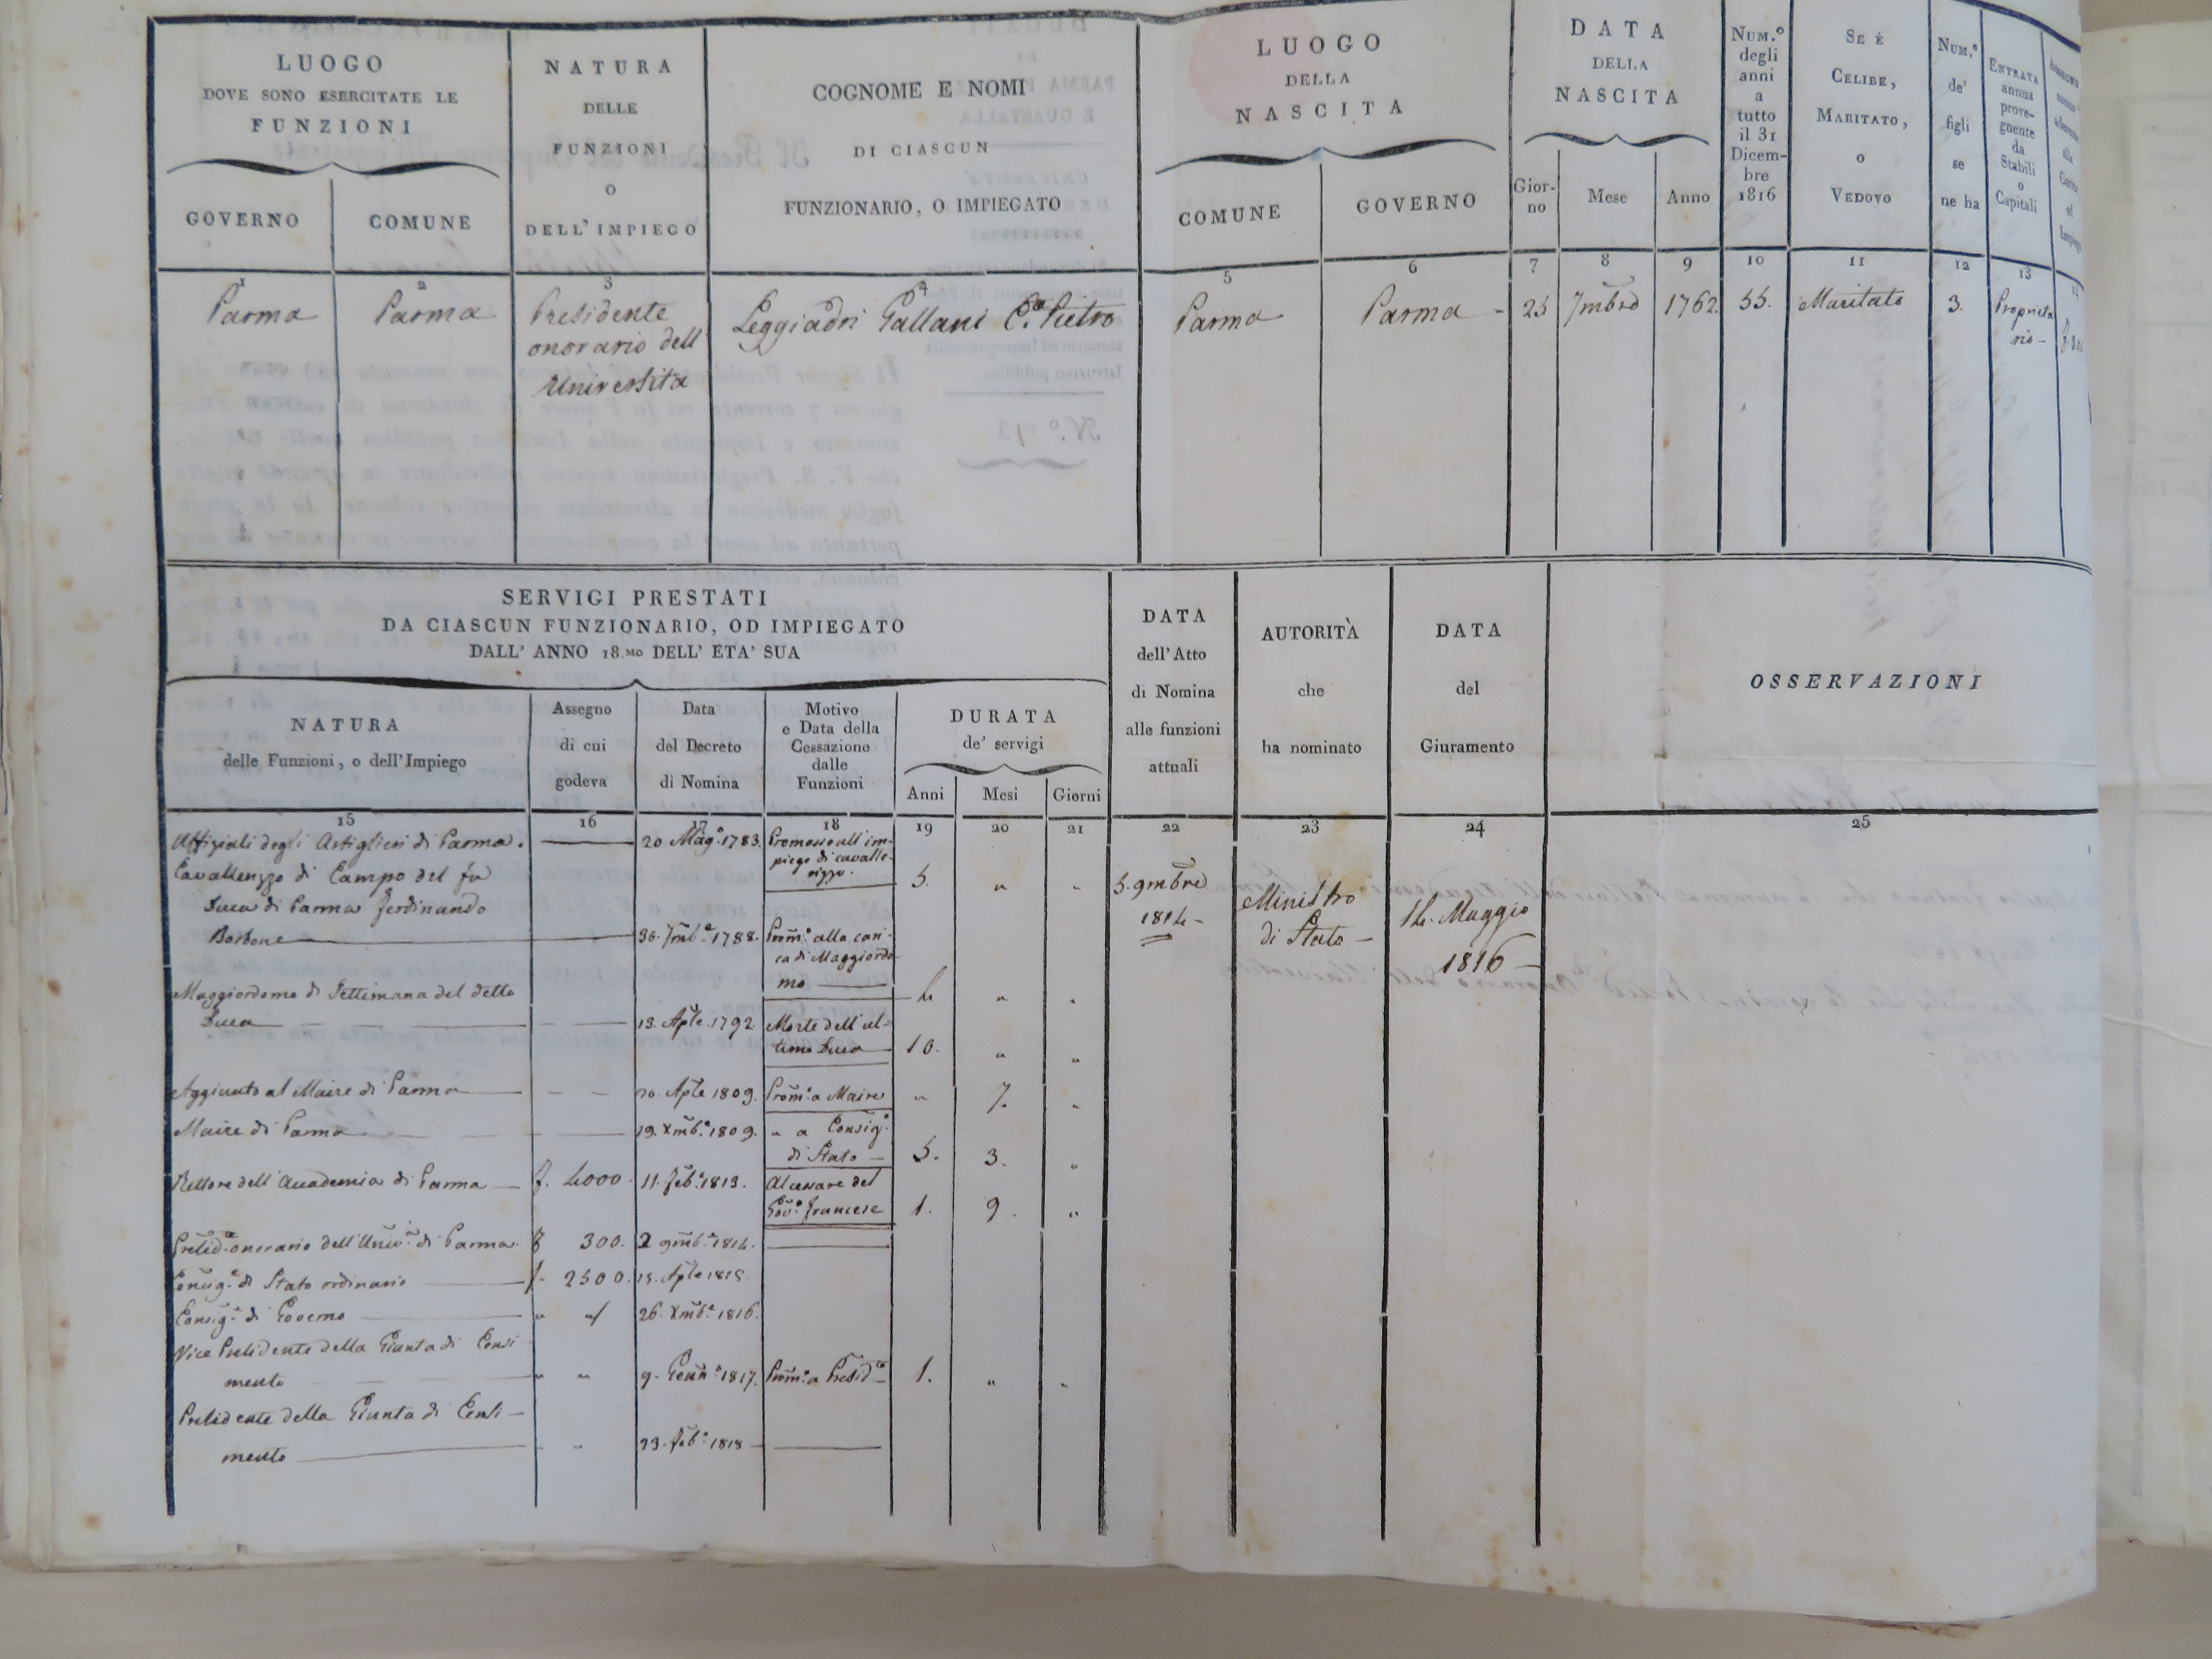 LUOGO
DOVE SONO ESERCITATE LE
FUNZIONI
GOVERNO
COMUNE
NATURA
DELLE
FUNZIONI
O
DELL' IMPIEGO
COGNOME E NOMI
DI CIASCUN
FUNZIONARIO, O IMPIEGATO
LUOGO
DELLA
NASCITA
COMUNE
GOVERNO
DATA
DELLA
NASCITA
Gior-
no
Mese
Anno
NUM.º
degli
anni
a
tutto
il 31
Dicem-
bre
1816
SE È
CELIBE,
MARITATO,
O
VEDOVO
NUM.º
de'
figli
se
ne ha
ENTRATA
annua
prove-
gnente
da
Stabili
o
Capitali
1 2 3 4 5 6 7 8 9 10 11 12 13
Parma
Parma
Presidente
onorario dell
Università
Leggiadri Gallani C.e Pietro
Parma
Parma -
25
7mbre
1762.
55.
Maritato
3.
Proprieta
rio -
SERVIGI PRESTATI
DA CIASCUN FUNZIONARIO, OD IMPIEGATO
DALL' ANNO 18.MO DELL' ETA' SUA
NATURA
delle Funzioni, o dell'Impiego
Assegno
di cui
godeva
Data
del Decreto
di Nomina
Motivo
e Data della
Cessazione
dalle
Funzioni
DURATA
de' servigi
Anni
Mesi
Giorni
DATA
dell'Atto
di Nomina
alle funzioni
attuali
AUTORITÀ
che
ha nominato
DATA
del
Giuramento
OSSERVAZIONI
15 16 17 18 19 20 21 22 23 24 25
Uffiziali degli Artiglieri di Parma. 20 Mag.º 1783. Promosso all'im-
piego di cavalle-
rizzo. 5. " "
Cavallerizzo di Campo del fu
Duca di Parma Ferdinando
Borbone 30. 7mb.e 1788. Prom.º alla cari-
ca di Maggiordo-
mo 4 " "
Maggiordomo di Settimana del detto
Duca 13. Aple. 1792. Morte dell'ul-
timo Duca 10. " "
Aggiunto al Maire di Parma Aple 1809. Prom.º a Maire " 7. "
Maire di Parma 19. Xmb.e 1809. " a Consig.e
di Stato 5. 3. "
Rettore dell'Accademia di Parma f. 4000. 11. Feb.º 1813. Al cessare del
Gov.º francese 1. 9. "
Presid.e onorario dell'Univ.à di Parma. f 300. 2 9mb.e 1814.
Consig.e di Stato ordinario f. 2500. 15. Aple 1815.
Consig.e di Governo " " 26. Xmb.e 1816.
Vice Presidente della Giunta di Censi
mento " " 9. Genn.º 1817. Prom.º a Presid.e 1. " "
Presidente della Giunta di Censi-
mento " 23. Feb.º 1818
5. 9mbre
1814-
Ministro
di Stato -
14. Maggio
1816 -